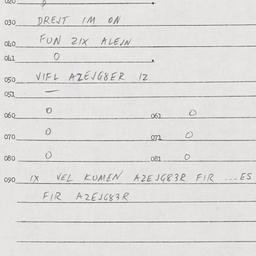 020 0
030 DREJT IM ON
040 FUN ZIX ALEJN
041 0
050 VIFL AZEJG8ER IZ
051 —
060 0 061 0
070 0 071 0
080 0 081 0
090 IX VEL KUMEN AZEJG83R FIR ... ES
FIR AZEJG83R